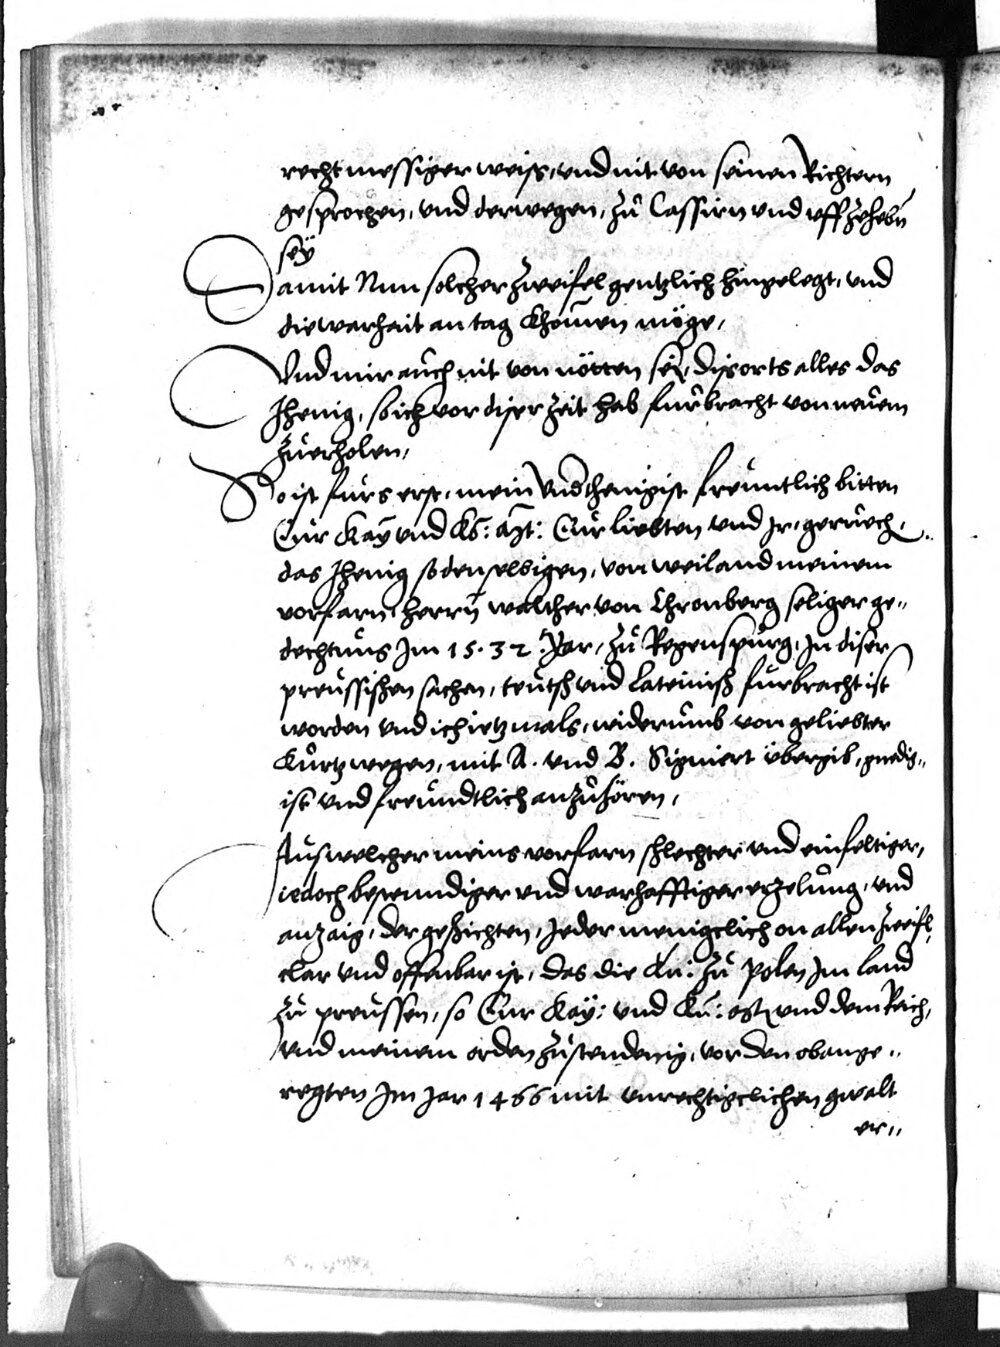 recht messiger weiß, und nit von seinen Richtern
gesprochen, und derwegen, zu Cassirn und uffzehebn
sey
Damit Nun solcher zweifel gentzlich hingelegt, und
die warhait an tag khomen möge,
Und mir auch nit von nötten sey, diß orts alles das
Jhenig, so ich vor diser zeit hab furbracht von neuem
zuerholen,
So ist furs erst, mein Underthenigist freuntlich bitten
Eur Kay und Ko: Mt: Eur liebten und Jr, geruech,
das Jhenig so denselbigen, von weiland meinem
vorfarn herrn walther von Chronberg seliger ge„
dechtnus Jm 15.32. Jar, zu Regenspurg, Jn diser
preussischen sachen, teutsch und Lateinisch furbracht ist
worden und ich ietzmals, widerumb von geliebter
kurtz wegen, mit A. und B. Signiert ubergib, gnedig„
ist und freundtlich anzuhören,
Aus welcher meins vorfarn schlechter und einfeltiger,
iedoch bestendiger und warhafftiger erzelung, und
anzaig, der geschichten, Jedermenigclich on allen zweifl,
clar und offenbar ist, das die Kn: zu polen Jm land
zu preussen, so Eur Kay: und Kn: Mt und dem Reich,
und meinem orden zustendenig, vor den obange„
regten Jm Jar 1466 mit unrechtigclichen gwalt
er„